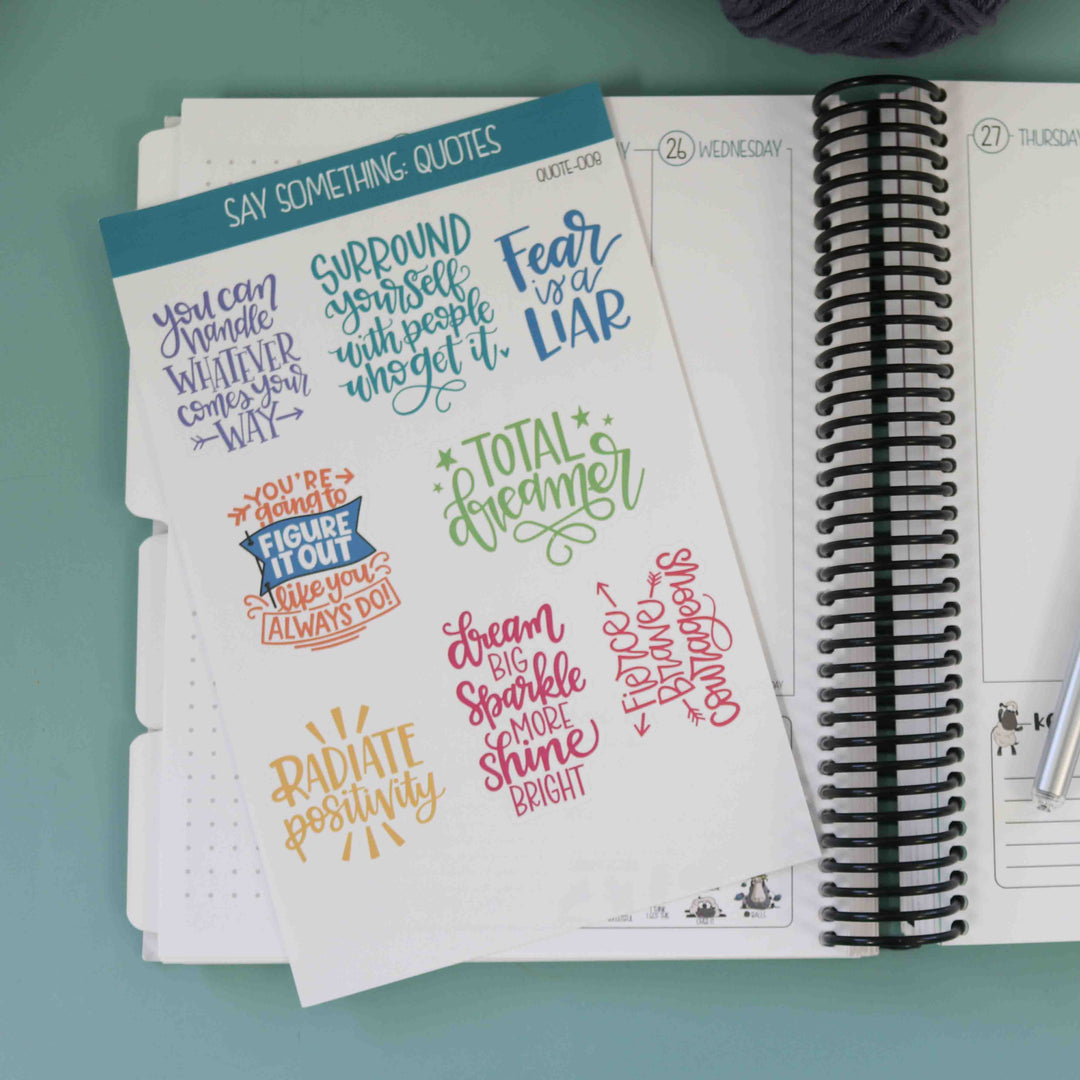 SAY SOMETHING: QUOTES
QUOTE-008
you can
handle
WHATEVER
comes your
WAY
SURROUND
yourself
with people
who get it
Fear
is a
LIAR
YOU'RE
going to
FIGURE
IT OUT
like you
ALWAYS DO!
TOTAL
dreamer
dream
BIG
Sparkle
MORE
shine
BRIGHT
Fierce
Brave
Courageous
RADIATE
positivity
26 WEDNESDAY
27 THURSDAY